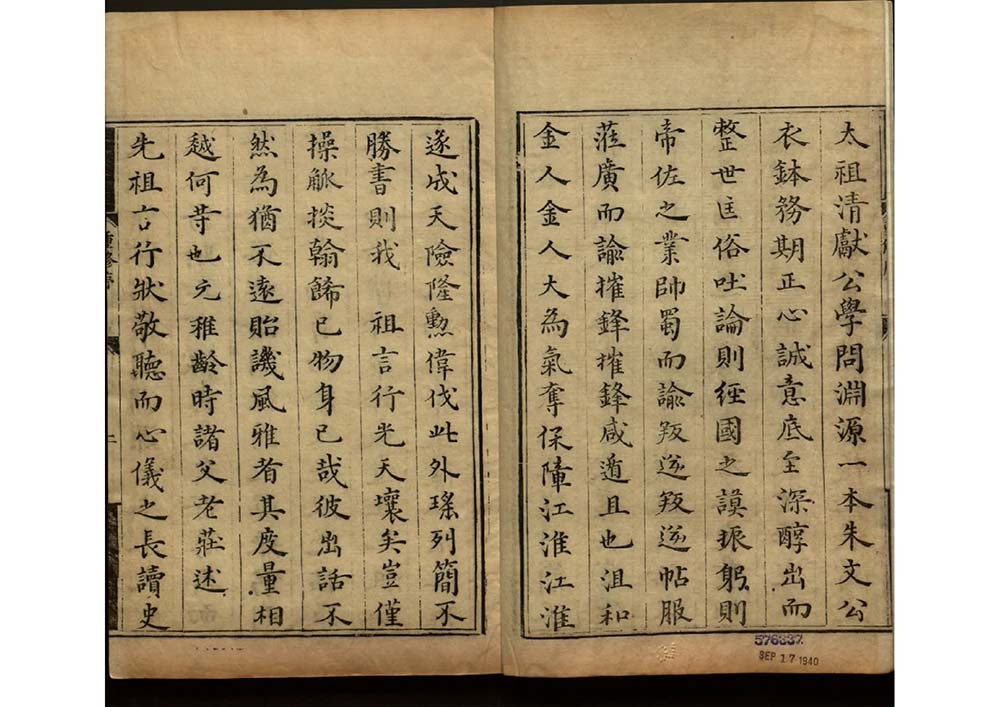 太祖清獻公學問淵源一本朱文公
衣鉢務期正心誠意底至深醇出而
整世匡俗吐論則經國之謨振躬則
帝佐之業帥蜀而諭叛逆叛逆帖服
蒞廣而諭摧鋒摧鋒咸遁且也沮和
金人金人大為氣奪保障江淮江淮
遂成天險隆勲偉伐此外瑤列簡不
勝書則我 祖言行光天壤矣豈僅
操觚掞翰餙已物身已哉彼出話不
然為猶不遠貽譏風雅者其度量相
越何等也元稚齡時諸父老莊述
先祖言行狀敬聽而心儀之長讀史
重修序
二
576337
SEP 17 1940